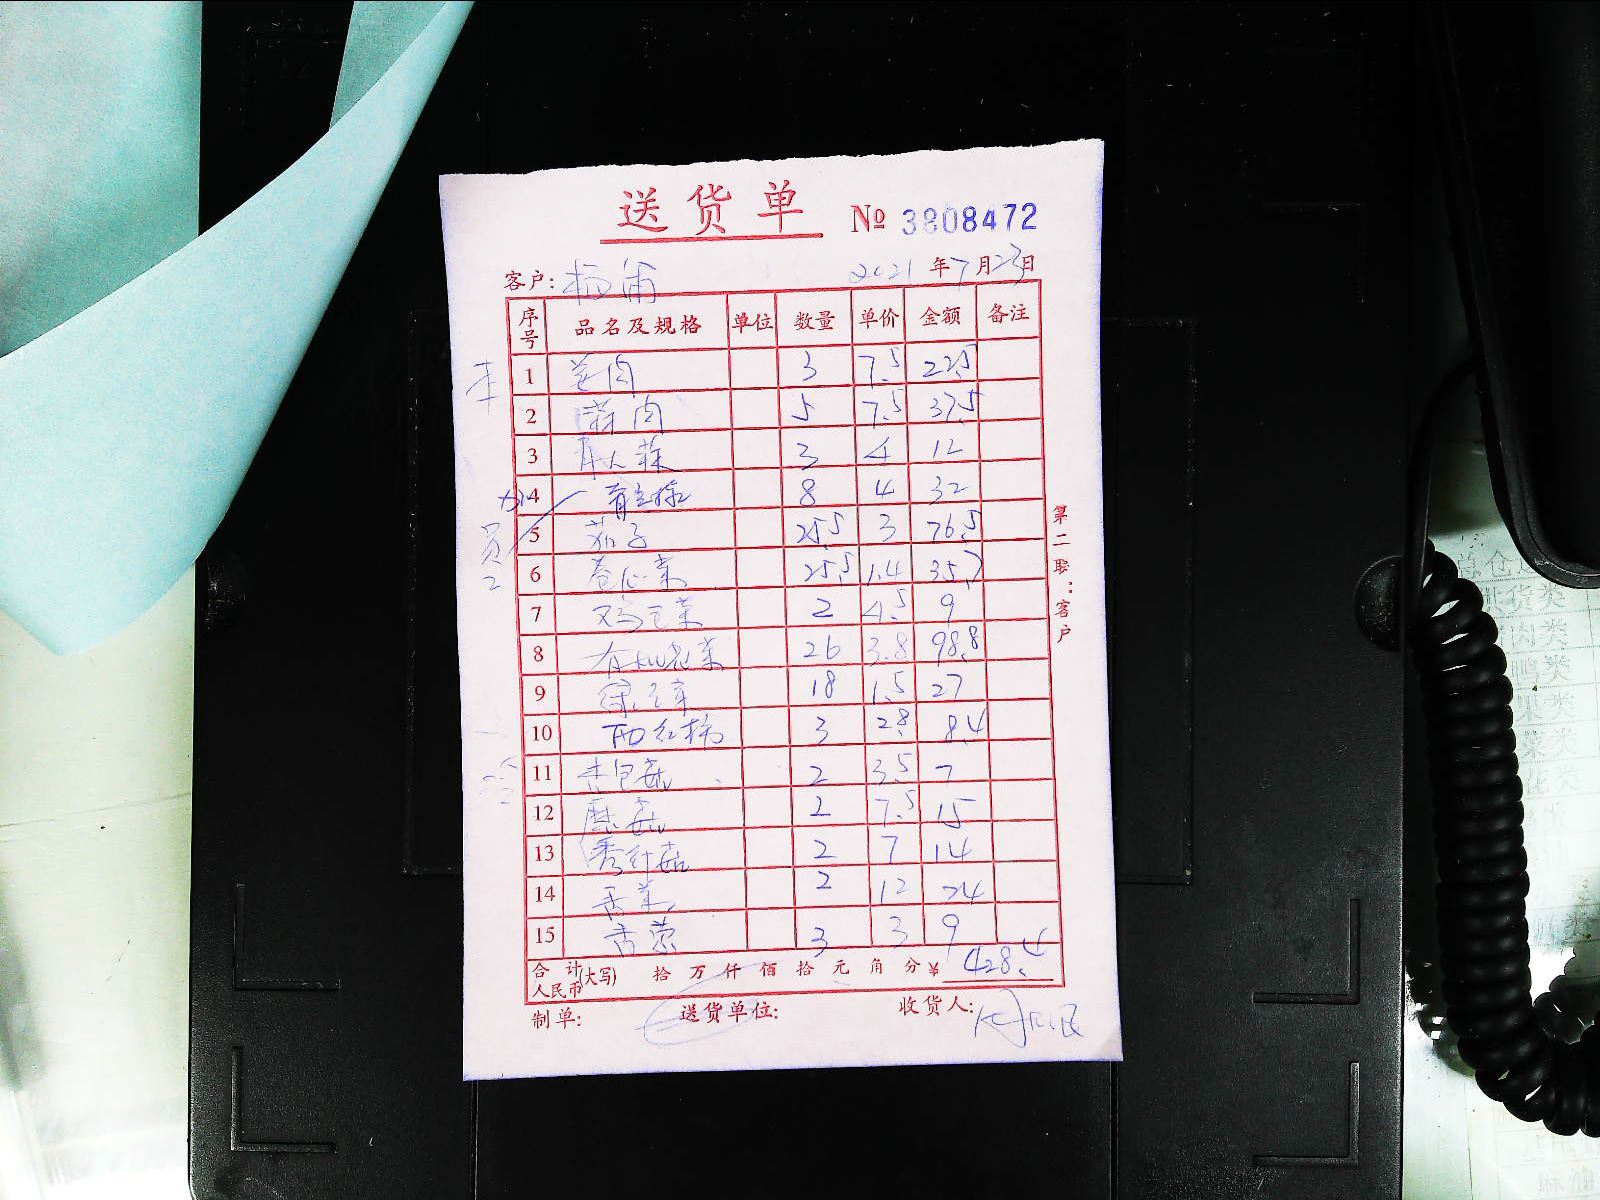 送货单 № 3808472
客户: 杨浦 2021年7月23日
序号 品名及规格 单位 数量 单价 金额 备注
1 姜肉 3 7.5 22.5
2 蒜肉 5 7.5 37.5
3 3 4 12
4 8 4 32
5 茄子 25.5 3 76.5
6 卷心菜 25.5 1.4 35.7
7 鸡毛菜 2 4.5 9
8 有机花菜 26 3.8 98.8
9 绿豆芽 18 1.5 27
10 西红柿 3 2.8 8.4
11 杏包菇 2 3.5 7
12 蘑菇 2 7.5 15
13 秀针菇 2 7 14
14 香菜 2 12 24
15 香葱 3 3 9
合计人民币(大写) 拾 万 仟 佰 拾 元 角 分 ¥ 428.4
制单: 送货单位: 收货人:
第二联:客户
货类
肉类